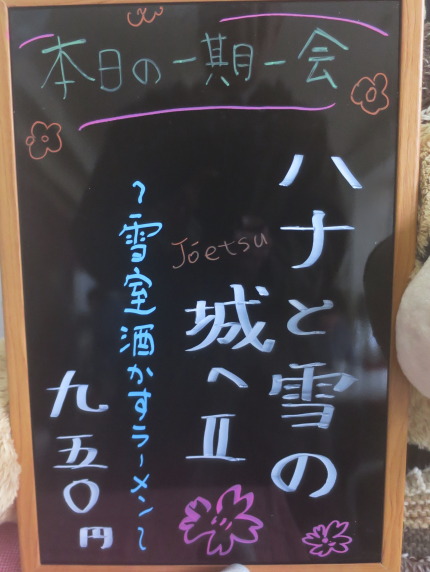 本日の一期一会
ハナと雪の
Jóetsu
城へⅡ
〜雪室酒かすラーメン〜
九五〇円